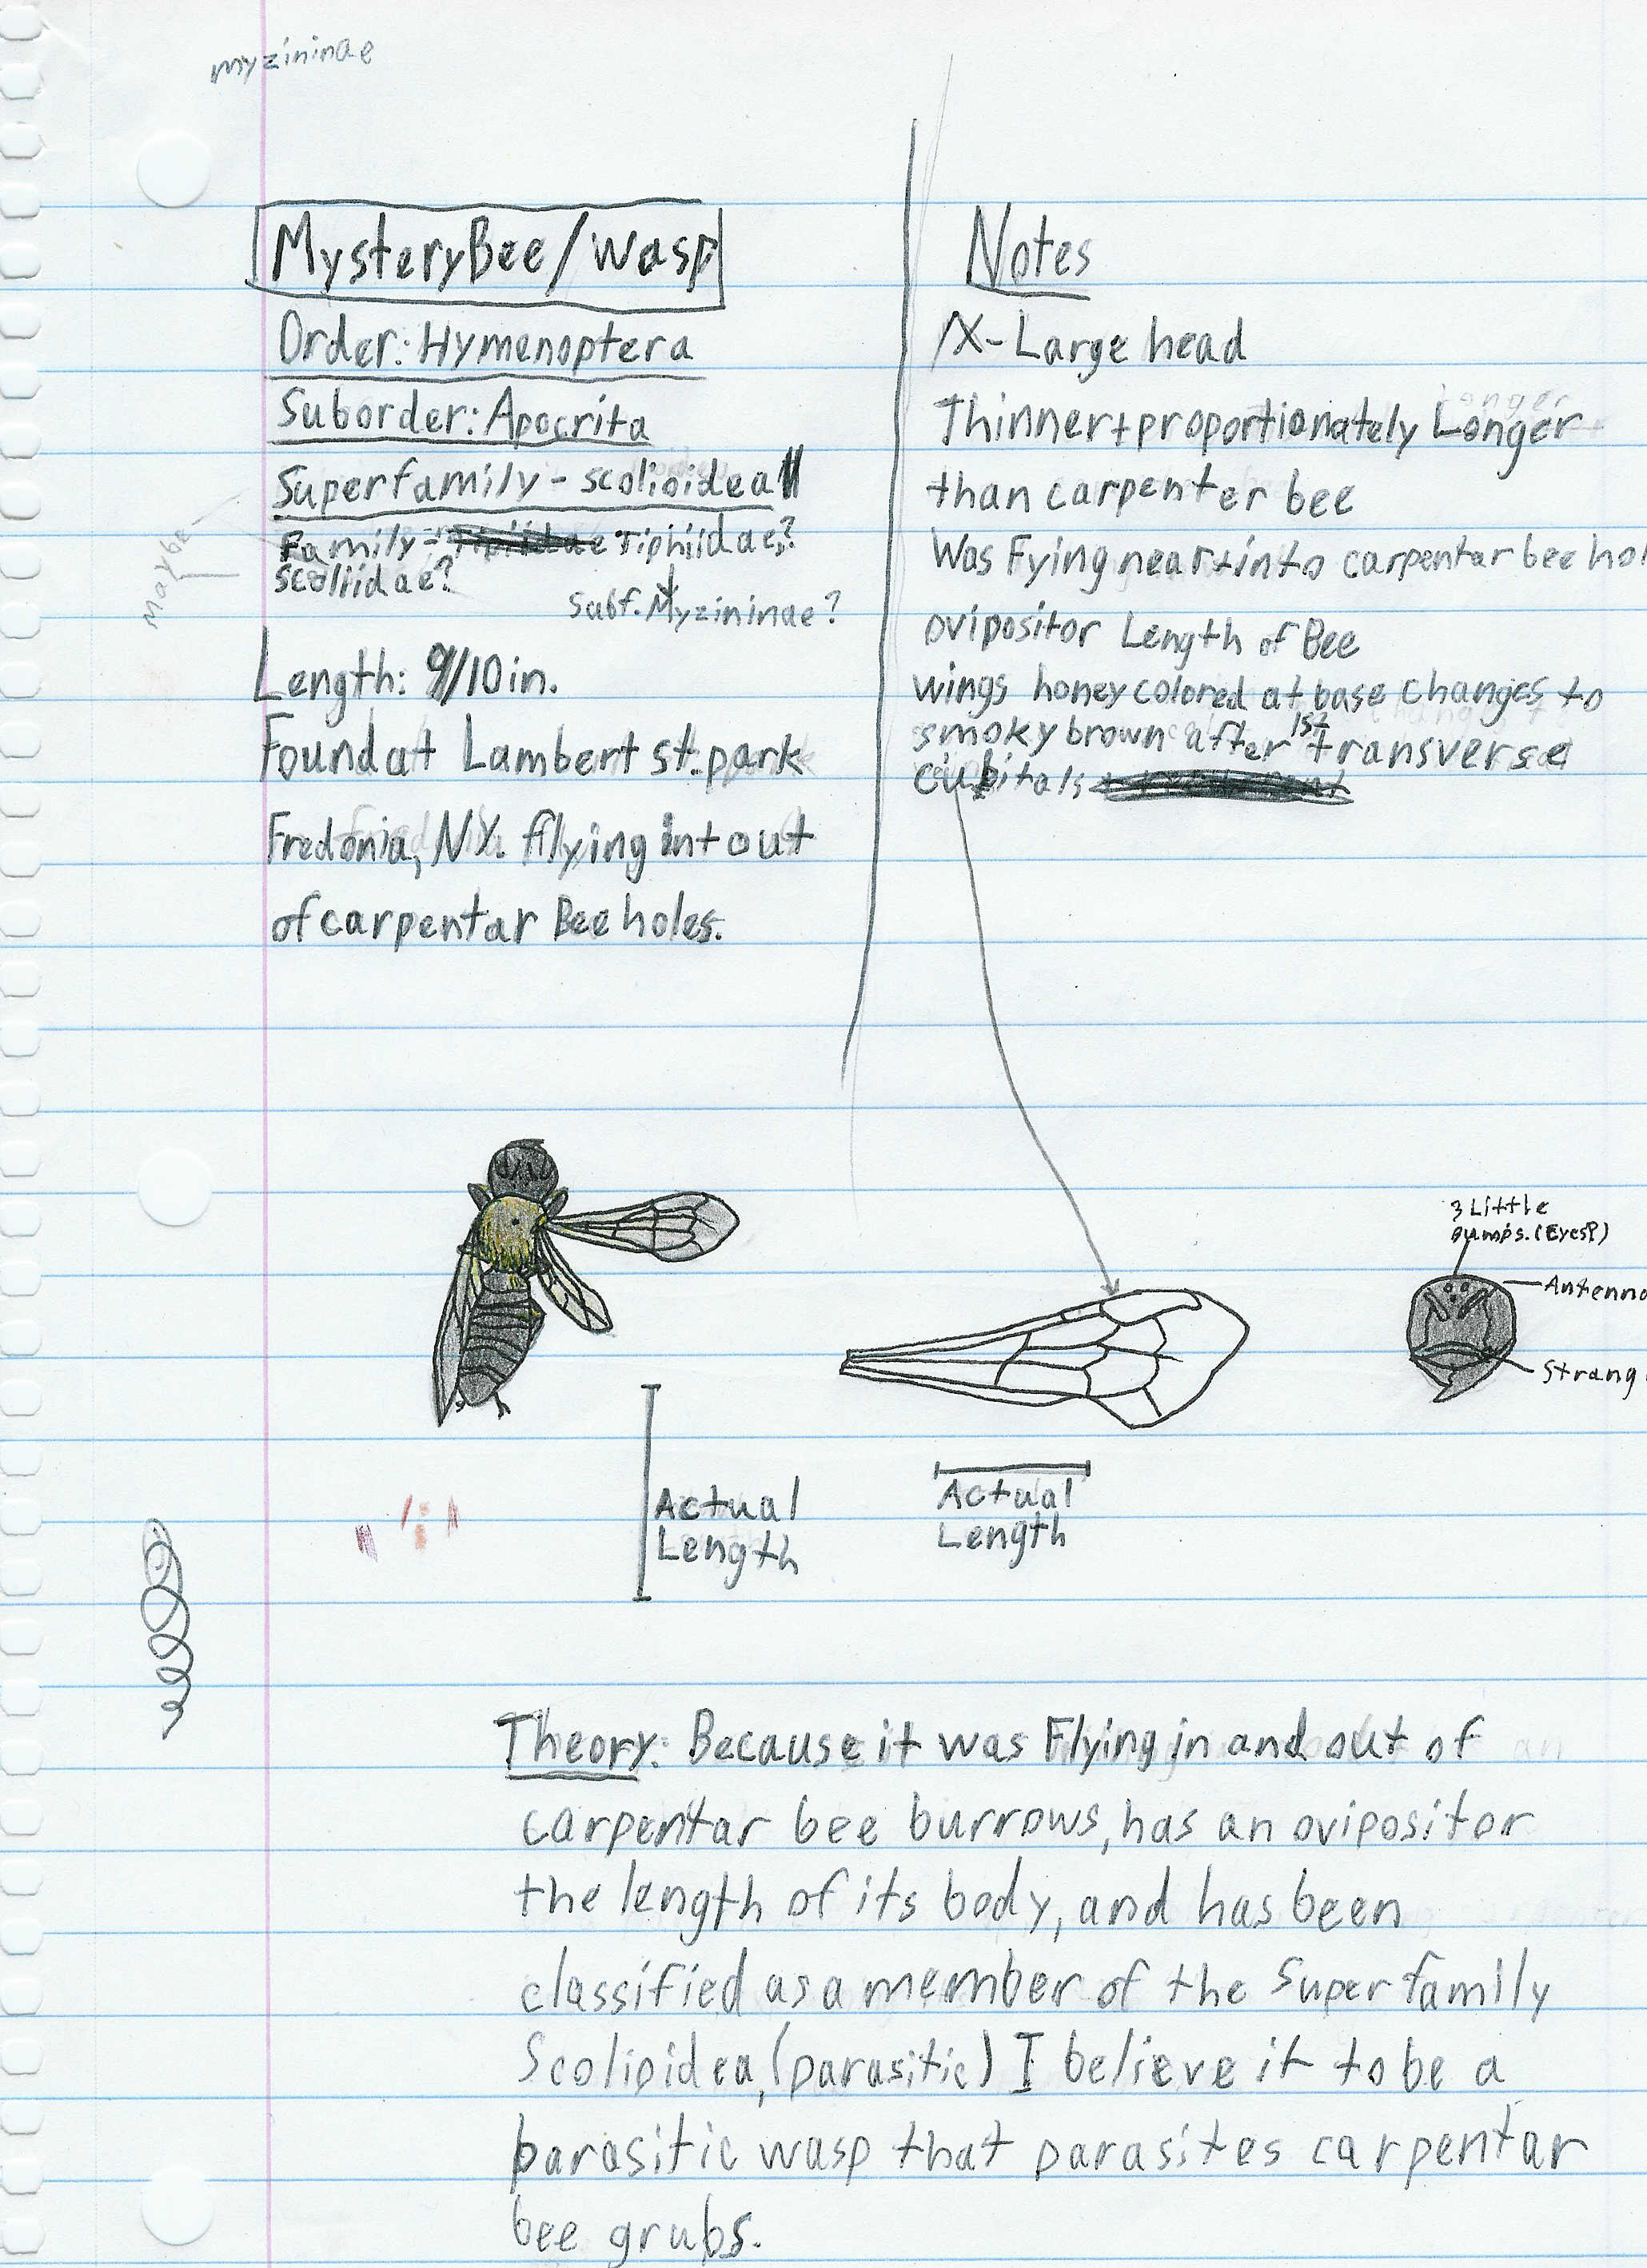 myzininae
MysteryBee/Wasp
Order: Hymenoptera
Suborder: Apocrita
Superfamily - scolioidea
maybe
Family - Tiphiidae,?
scoliidae?
Subf. Myzininae?
Length: 9/10 in.
Found at Lambert st. park
Fredonia, NY. flying in + out
of carpentar Bee holes.
Notes
X-Large head
Thinner + proportionately Longer
than carpenter bee
Was Fying near + into carpentar bee hol
ovipositor Length of Bee
wings honey colored at base changes to
smoky brown after 1st transverse
cubitals
3 Little
Bumps. (Eyes?)
Antenna
Strang
Actual
Length
Actual
Length
Theory: Because it was Flying in and out of
carpentar bee burrows, has an ovipositor
the length of its body, and has been
classified as a member of the Superfamily
Scolioidea, (parasitic) I believe it to be a
parasitic wasp that parasites carpentar
bee grubs.